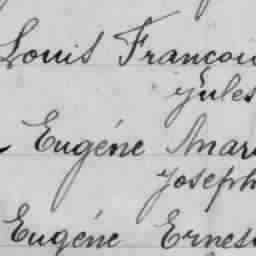 Louis François
Jules
Eugéne Mari
Joseph
Eugéne Ernest